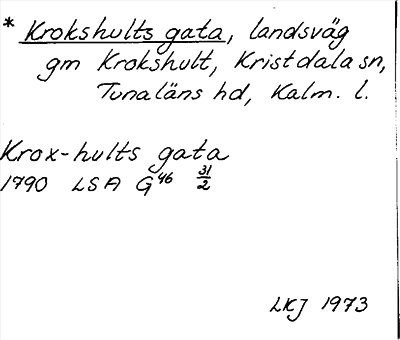 * Krokshults gata, landsväg
gm Krokshult, Kristdala sn,
Tunaläns hd, Kalm. l.
Krox-hults gata
1790 LSA G46 31/2
LKJ 1973